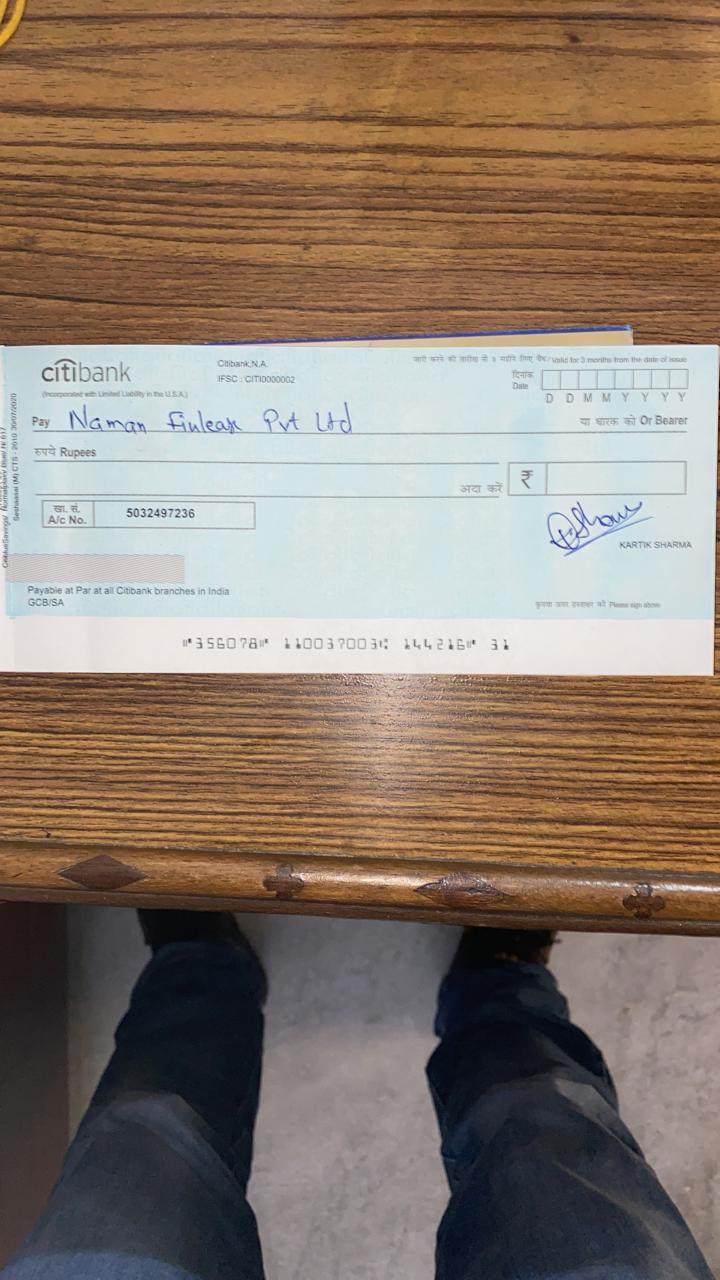 citibank
(Incorporated with Limited Liability in the U.S.A.)
Citibank,N.A.
IFSC : CITI0000002
जारी करने की तारीख से ३ महीने लिए वैध/Valid for 3 months from the date of issue
दिनांक
Date
D D M M Y Y Y Y
Pay Naman Finlease Pvt Ltd
या धारक को Or Bearer
रुपये Rupees
अदा करें
₹
खा. सं.
A/c No.
5032497236
KARTIK SHARMA
Payable at Par at all Citibank branches in India
GCB/SA
Please sign above
Seshaasai (M) CTS - 2010 30/07/2020
⑈356078⑈ 110037003⑆ 144216⑈ 31